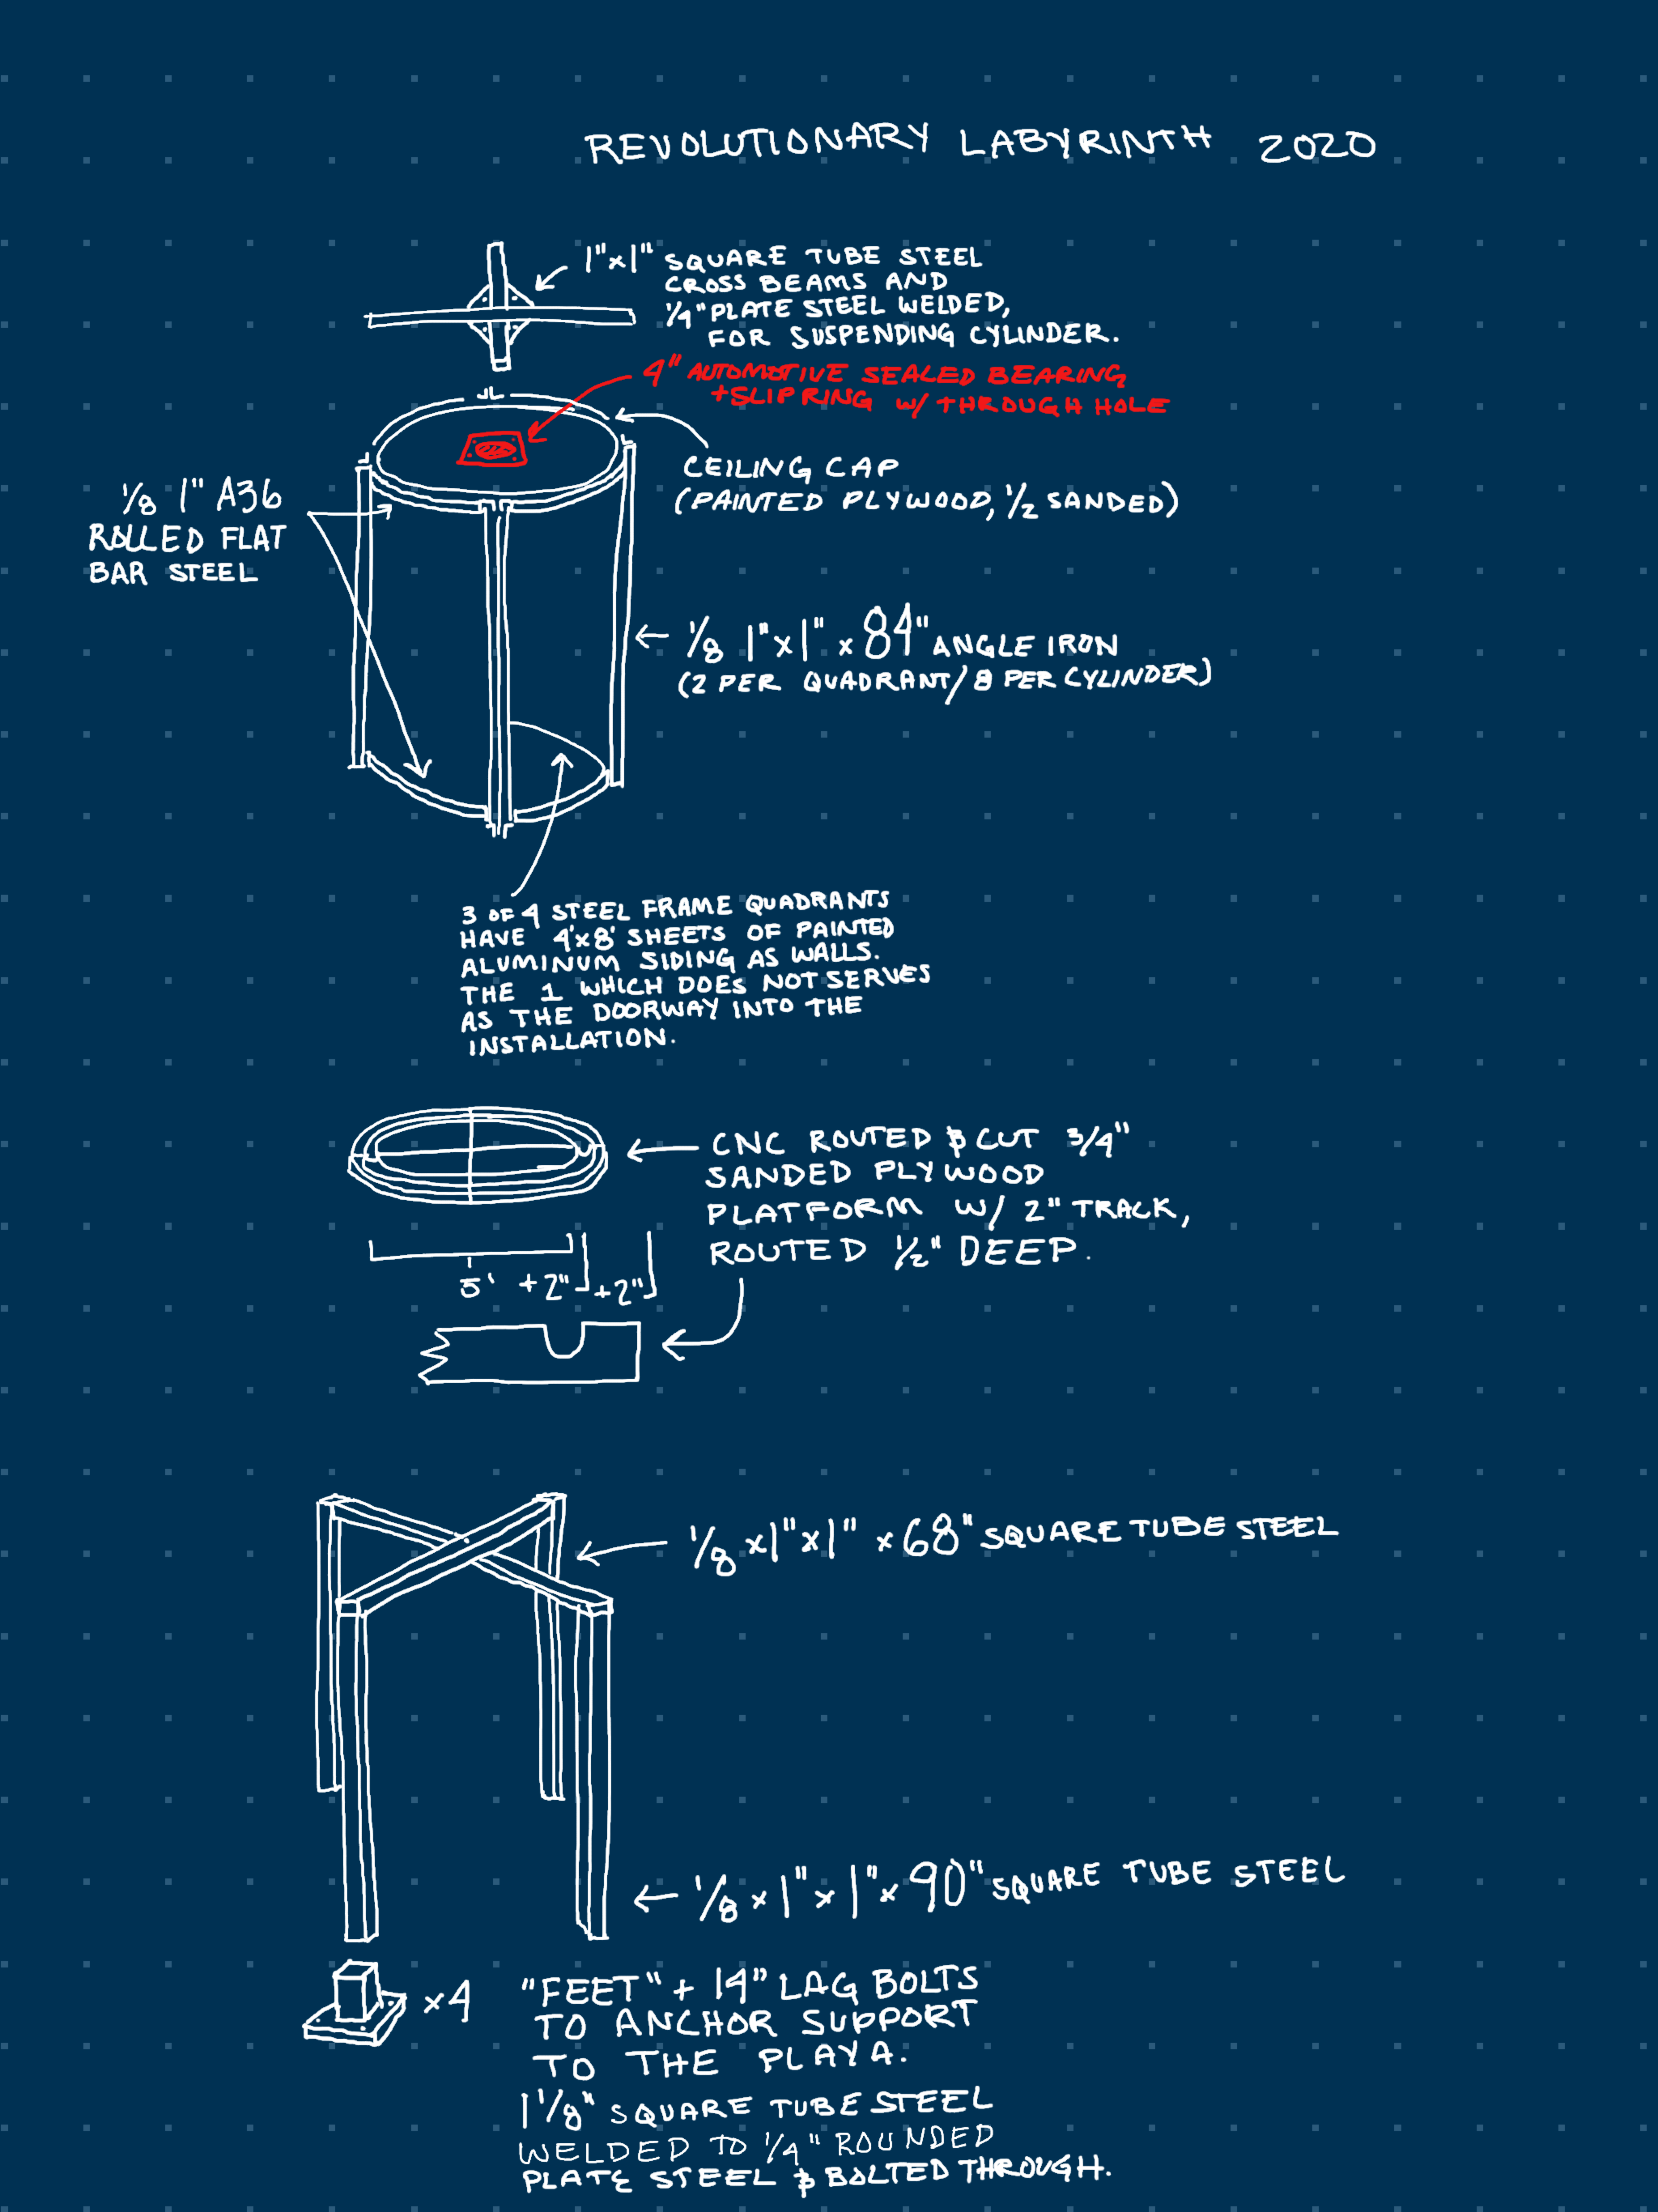 REVOLUTIONARY LABYRINTH 2020
1"x1" SQUARE TUBE STEEL
CROSS BEAMS AND
1/4" PLATE STEEL WELDED,
FOR SUSPENDING CYLINDER.
4" AUTOMOTIVE SEALED BEARING
+SLIPRING W/ THROUGH HOLE
CEILING CAP
(PAINTED PLYWOOD, 1/2 SANDED)
1/8 1" A36
ROLLED FLAT
BAR STEEL
1/8 1"x1" x 84" ANGLE IRON
(2 PER QUADRANT/8 PER CYLINDER)
3 OF 4 STEEL FRAME QUADRANTS
HAVE 4'x8' SHEETS OF PAINTED
ALUMINUM SIDING AS WALLS.
THE 1 WHICH DOES NOT SERVES
AS THE DOORWAY INTO THE
INSTALLATION.
CNC ROUTED & CUT 3/4"
SANDED PLYWOOD
PLATFORM W/ 2" TRACK,
ROUTED 1/2" DEEP.
5' +2" +2"
1/8 x1"x1" x68" SQUARE TUBE STEEL
1/8 x 1" x 1" x 90" SQUARE TUBE STEEL
x4
"FEET" + 14" LAG BOLTS
TO ANCHOR SUPPORT
TO THE PLAYA.
1 1/8" SQUARE TUBE STEEL
WELDED TO 1/4" ROUNDED
PLATE STEEL & BOLTED THROUGH.